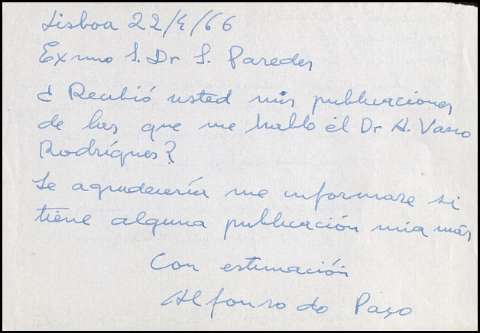 Lisboa 22/4/66
Exmo S. Dr S. Paredes
¿Recibió usted mis publicaciones
de las que me habló el Dr A. Vasco
Rodrígues?
Le agradecería me informare si
tiene alguna publicación mia más
Con estimación
Alfonso do Paço